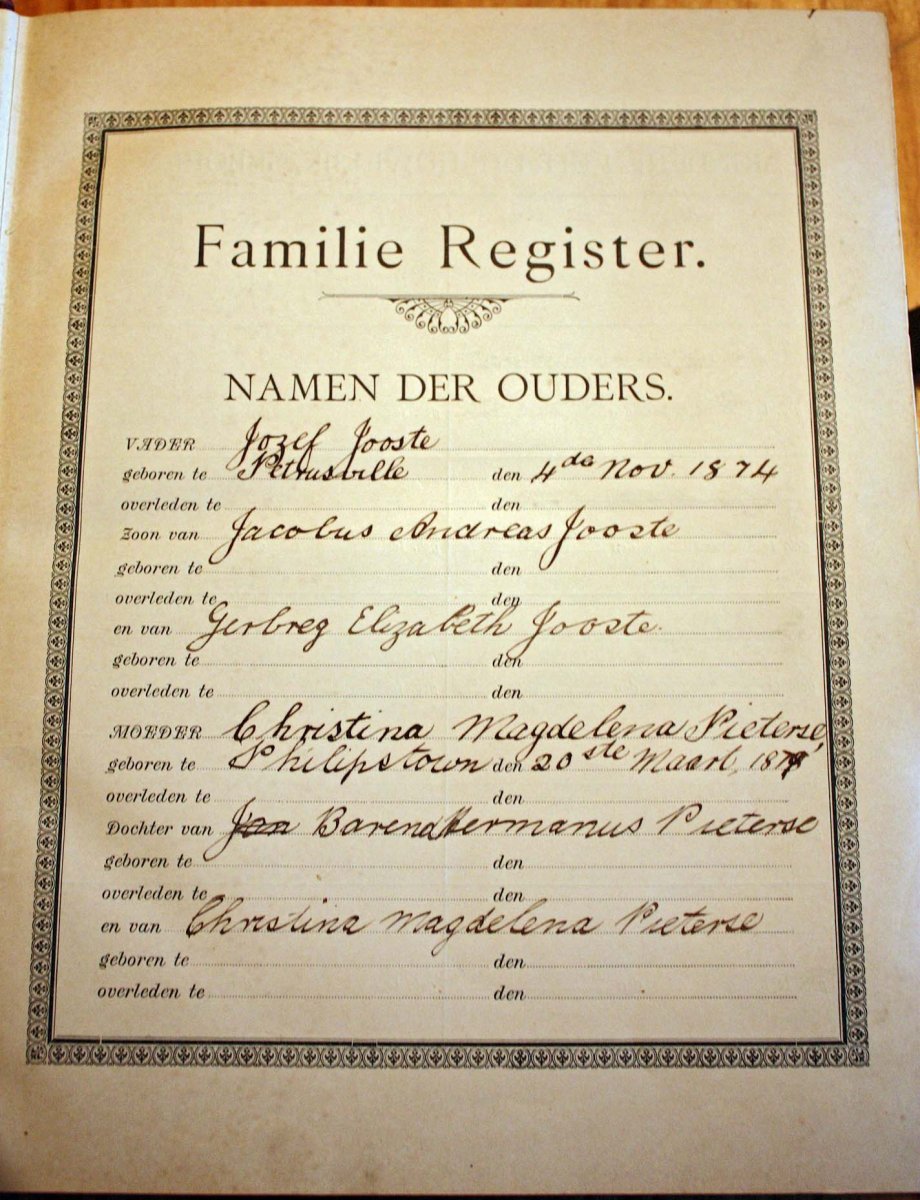 Familie Register.
NAMEN DER OUDERS.
VADER Jozef Jooste
geboren te Petrusville den 4de Nov. 1874
overleden te den
Zoon van Jacobus Andreas Jooste
geboren te den
overleden te den
en van Gerbreg Elizabeth Jooste
geboren te den
overleden te den
MOEDER Christina Magdelena Pieterse
geboren te Philipstown den 20ste Maart,
overleden te den
Dochter van Jan Barend Hermanus Pieterse
geboren te den
overleden te den
en van Christina Magdelena Pieterse
geboren te den
overleden te den